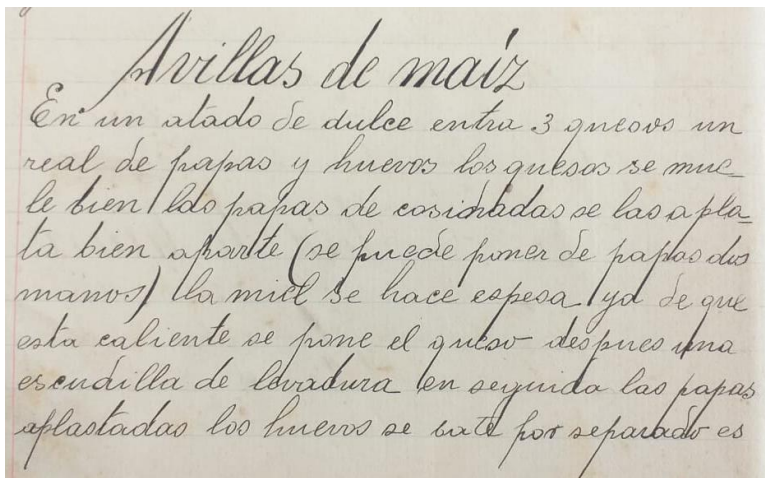 Avillas de maíz
En un atado de dulce entra 3 quesos un
real de papas y huevos los quesos se mue-
le bien las papas de cosinadas se las apla-
ta bien aparte (se puede poner de papas dos
manos) la miel se hace espesa ya de que
esta caliente se pone el queso despues una
escudilla de levadura en seguida las papas
aplastadas los huevos se bate por separado es